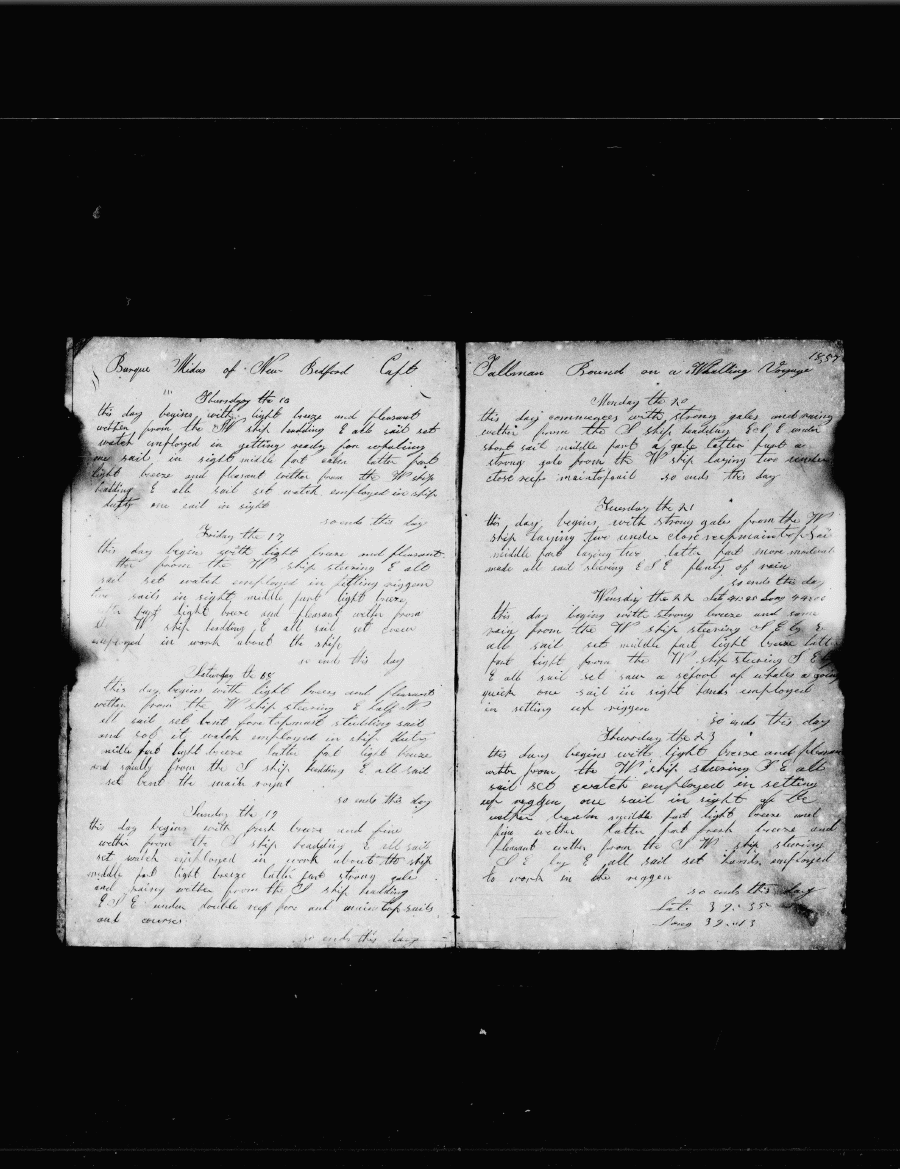 Barque Midas of New Bedford Capt
Thursday the 16
this day begins with light breeze and pleasant
wether from the SW ship heading E all sail set
watch employed in getting ready for whaling
one sail in sight middle part latter part
light breeze and pleasant wether from the W ship
heading E all sail set watch employed in ship
duty one sail in sight
so ends this day
Friday the 17
this day begins with light breeze and pleasant
ther from the W ship steering E all
sail set watch employed in fitting riggen
two sails in sight middle part light breeze
part light breeze and pleasant wether from
W ship heading E all sail set crew
employed in work about the ship
so ends this day
Saturday the 18
this day begins with light breeze and pleasant
wether from the W ship steering E half N
all sail set bent fore topmast studding sail
and sot it watch employed in ship duty
midle part light breeze latter part light breeze
and squally from the S ship heading E all sail
set bent the main royal
so ends this day
Sunday the 19
this day begins with fresh breeze and fine
wether from the S ship heading E all sail
set watch employed in work about the ship
middle part light breeze latter part strong gale
and rainy wether from the S ship heading
E S E under double reef fore and main top sails
and courses
so ends this day
1857
Tallman Bound on a Whalling Voyage
Monday the 20
this day commences with strong gales and rainy
wether from the S ship heading E S E under
short sail middle part a gale latter part a
strong gale from the W ship laying two under
close reefe maintopsail so ends this day
Tuesday the 21
this day begins with strong gales from the W
ship laying two under close reef maintopsail
middle part laying two latter part more moderate
made all sail steering E S E plenty of rain
so ends this day
Wensday the 22 Lat Long
this day begins with strong breeze and some
rain from the W ship steering S E by E
all sail set middle part light breeze latter
part light from the W ship steering S E by
E all sail set saw a scool of whales a going
quick one sail in sight hands employed
in setting up riggen
so ends this day
Thursday the 23
this day begins with light breeze and pleasant
wether from the W ship steering S E all
sail set watch employed in setting
up riggen one sail in sight
middle part light breeze and
fine wether latter part fresh breeze and
pleasant wether from the S W ship steering
S E by E all sail set hands employed
to work in the riggen
so ends this day
Lat. 39-35
Long 39-13